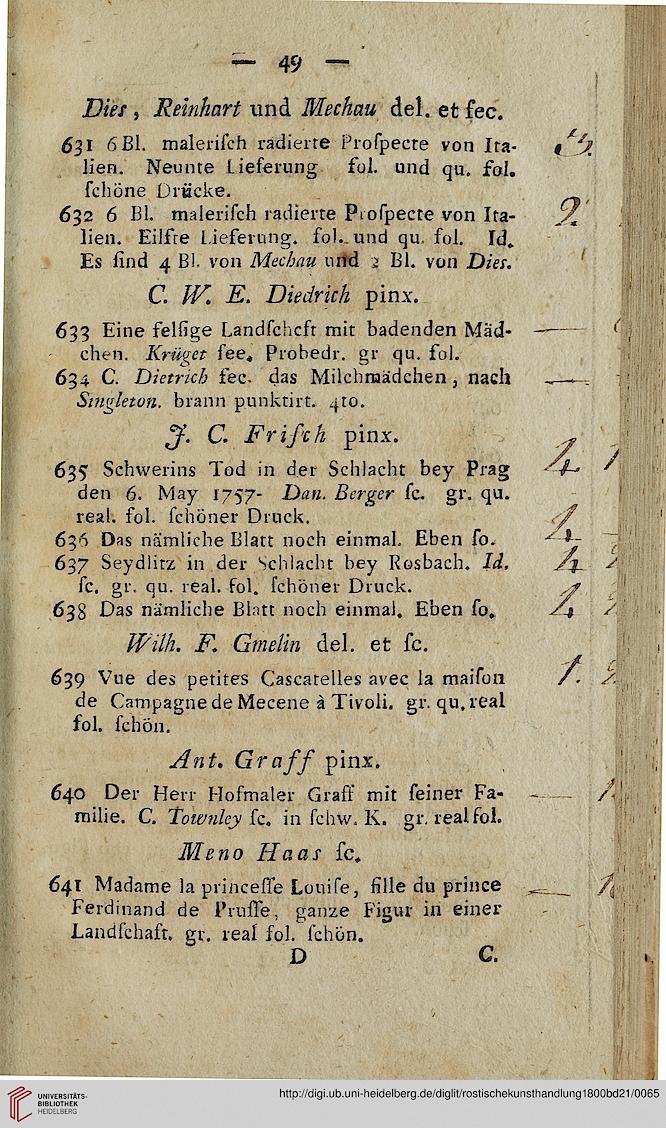 — 49 —
Dies, Reinhart und Mechau del. et ſec.
631 6 Bl. maleriſch radierte Proſpecte von Ita-
lien. Neunte Lieferung fol. und qu. fol.
ſchöne Drücke.
632 6 Bl. maleriſch radierte Proſpecte von Ita-
lien. Eilfte Lieferung. fol. und qu. fol. Id.
Es ſind 4 Bl. von Mechau und 2 Bl. von Dies.
2.
C. W. E. Diedrich pinx.
633 Eine felſige Landſchcft mit badenden Mäd-
chen. Krüget ſee. Probedr. gr qu. fol.
634 C. Dietrich fec. das Milchmädchen, nach
Singleton. brann punktirt. 4to.
J. C. Friſch pinx.
635 Schwerins Tod in der Schlacht bey Prag
den 6. May 1757- Dan. Berger ſc. gr. qu.
real. fol. ſchöner Druck.
4
636 Das nämliche Blatt noch einmal. Eben ſo.
4
637 Seydlitz in der Schlacht bey Rosbach. Id.
ſc. gr. qu. real. fol. ſchöner Druck.
4
638 Das nämliche Blatt noch einmal. Eben ſo.
4
Wilh. F. Gmelin del. et ſc.
639 Vue des petites Cascatelles avec la maiſon
de Campagne de Mecene à Tivoli. gr. qu. real
fol. ſchön.
1.
Ant. Graff pinx.
640 Der Herr Hofmaler Graff mit ſeiner Fa-
milie. C. Townley ſc. in ſchw. K. gr. real fol.
Meno Haas ſc.
641 Madame la princeſſe Louiſe, fille du prince
Ferdinand de Pruſſe, ganze Figur in einer
Landſchaft. gr. real fol. ſchön.
D C.
UNIVERSITÄTS-
BIBLIOTHEK
HEIDELBERG
http://digi.ub.uni-heidelberg.de/diglit/rostischekunsthandlung1800bd21/0065